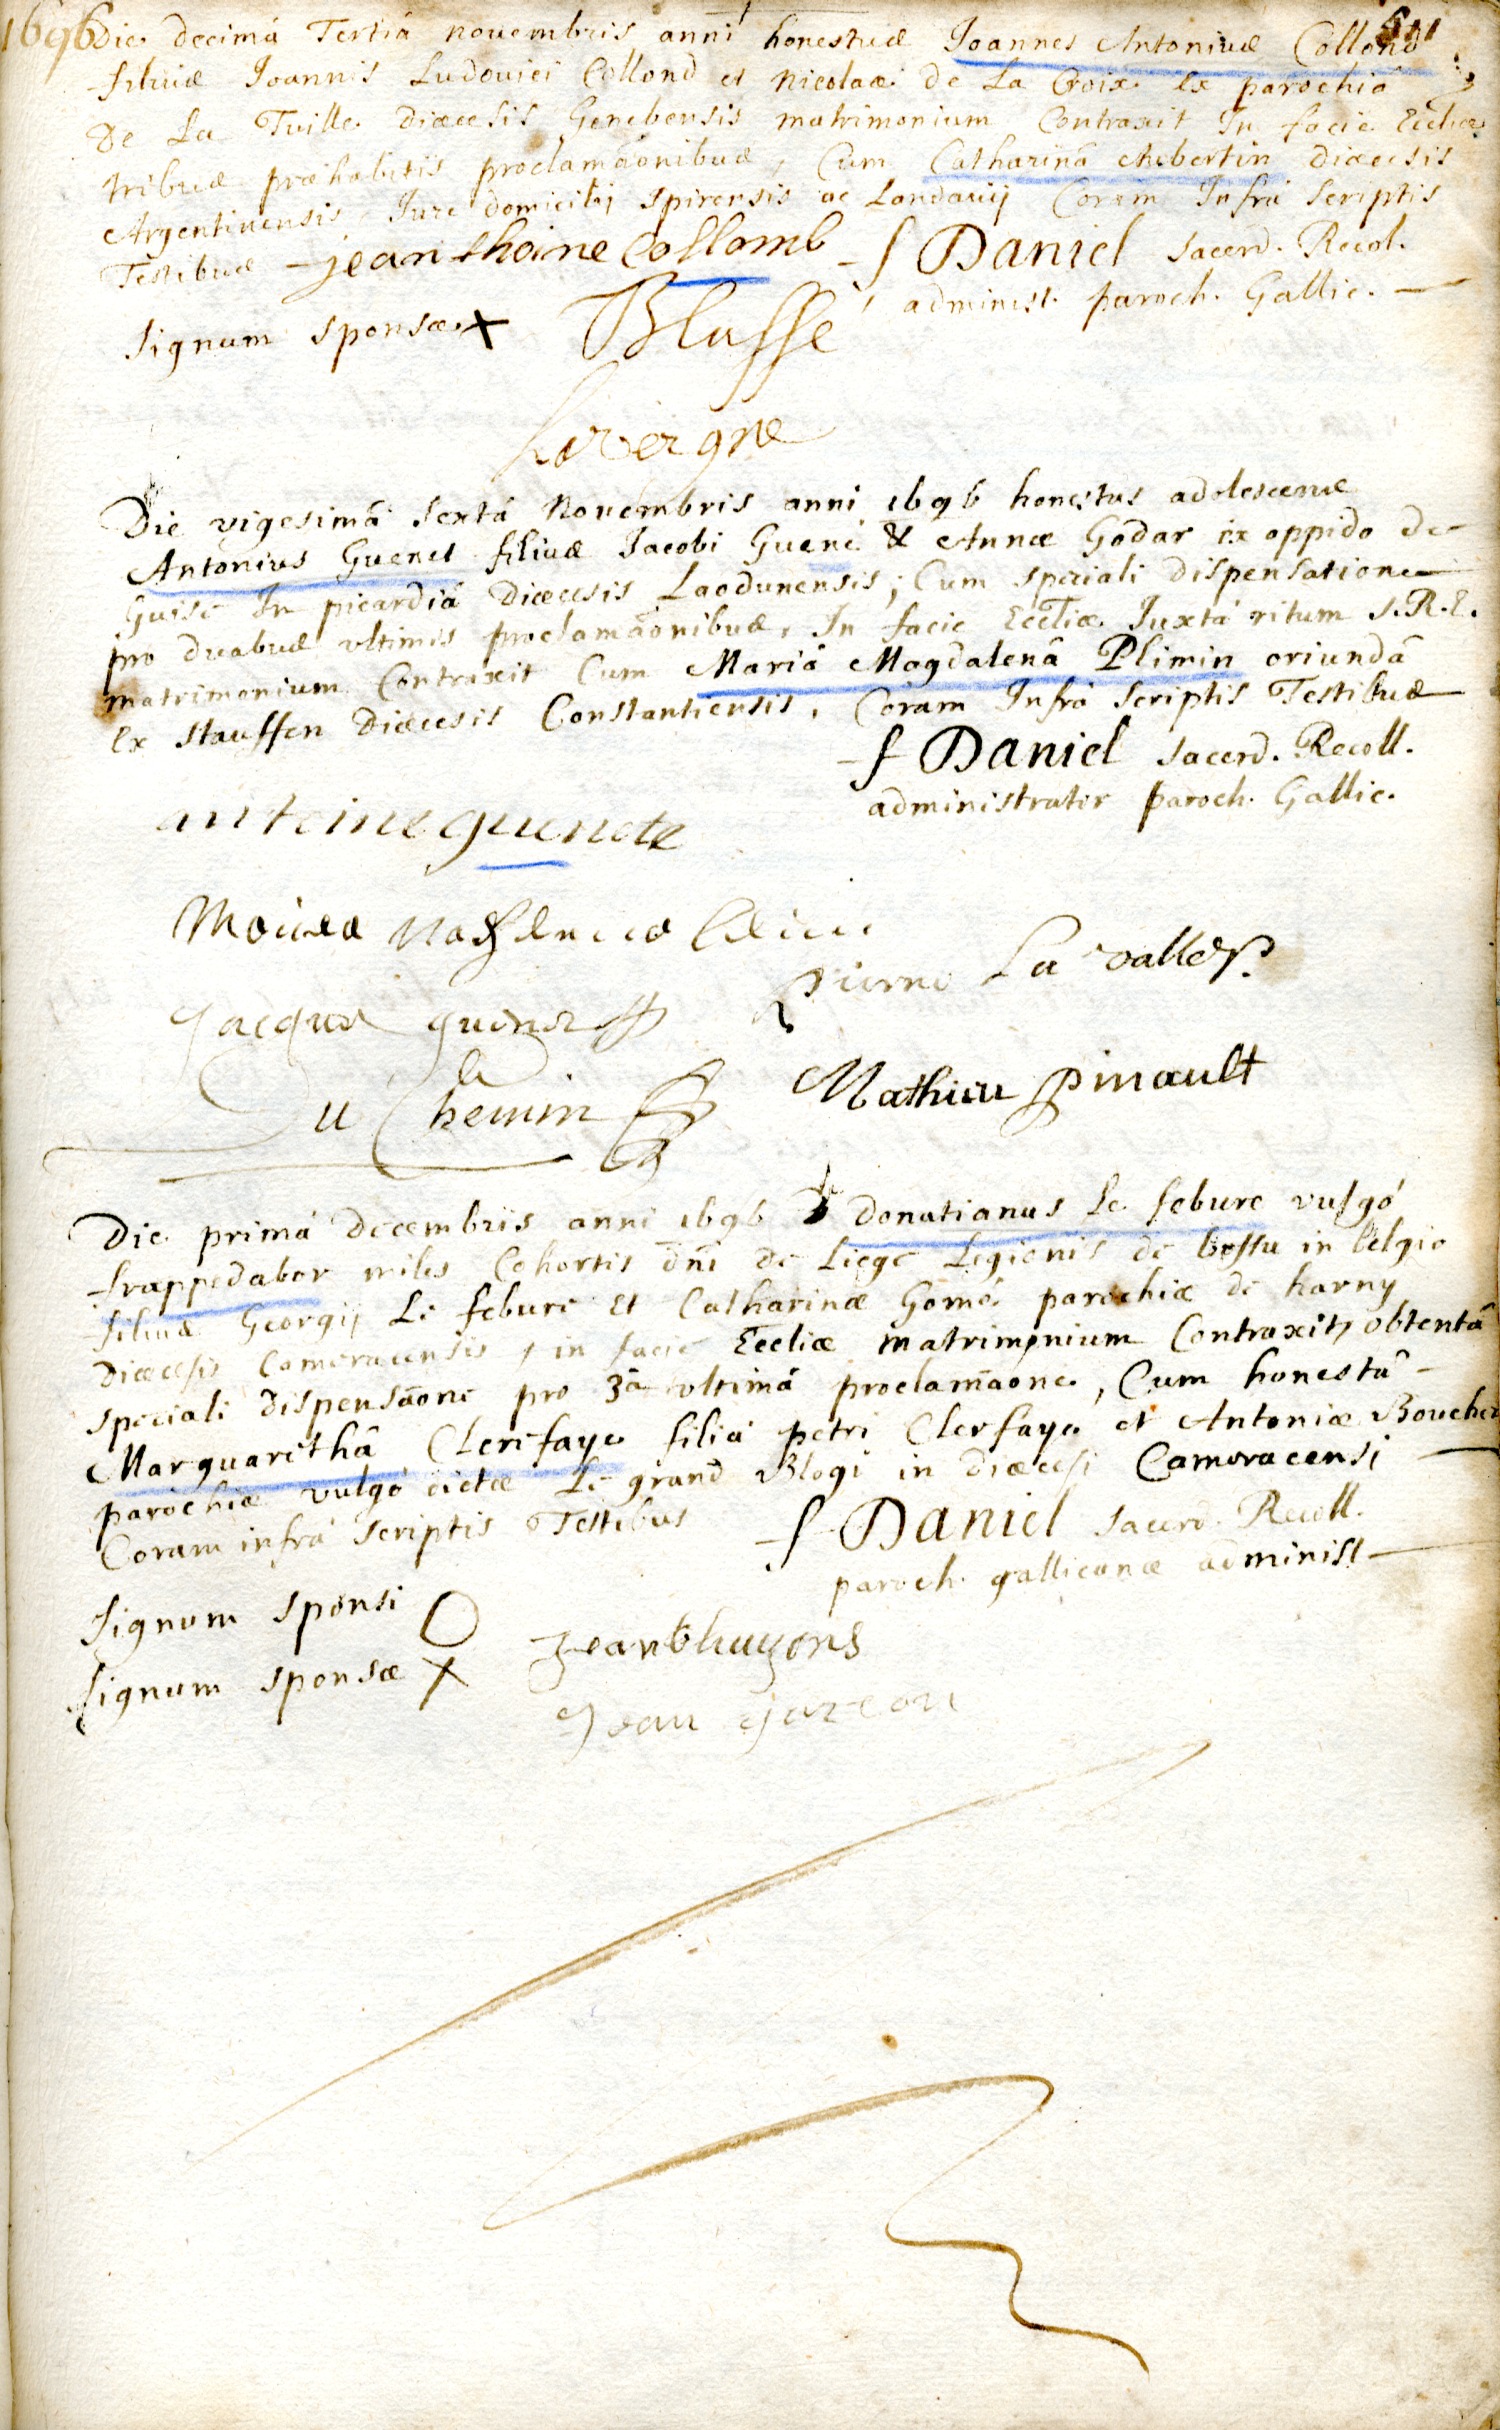 1696 Die decimâ Tertiâ novembris anni honestus Joannes Antonius Collond
filius Joannis Ludovici Collond et Nicolaæ de La Croix ex parochiâ
De La Tuille diæcesis Genebensis matrimonium Contraxit In facie Eccliæ
tribus præhabitis proclamãonibus, Cum Catharinâ Aubertin diæcesis
Argentinensis, Jure domicilij spirensis ac Landavij Coram Infrà scriptis
Testibus jean thoine Collomb f Daniel sacerd. Recol.
administ. paroch. Gallic.
signum sponsæ x Blasse
Lavergne
Die vigesimâ sextâ Novembris anni 1696 honestus adolescens
Antonius Guenet filius Jacobi Guené & Annæ Godar ex oppido de
Guise In picardiâ Diæcesis Laodunensis; Cum speciali dispensatione
pro duabus ultimis proclamãonibus, In facie Eccliæ Juxtà ritum S.R.E.
matrimonium Contraxit Cum Mariâ Magdalenâ Plimin oriundâ
ex stauffen Diæcesis Constantiensis, Coram Infrà scriptis Testibus
f Daniel sacerd. Recoll.
administrator paroch. Gallic.
antoine guenete
Pierre La vallee
Jacque guenet
Du Chemin Mathieu Pinault
Die primâ Decembris anni 1696 donatianus Le febure vulgò
frappedabor miles Cohortis dñi de Liege Legionis de bossu in belgio
filius Georgij Le febure et Catharinæ Gomé parochiæ de harny
Diæcesis Cameracensis, in facie Eccliæ matrimonium Contraxit, obtentâ
speciali dispensãone pro 3â ultimâ proclamãone, Cum honestâ
Marguarethâ Clerfaye filiâ petri Clerfaye et Antoniæ Boucher
parochiæ vulgò dictæ Le grand Blogi in diæcesi Cameracensi
Coram infrà scriptis Testibus f Daniel sacerd. Recoll.
paroch. gallicanæ administ
signum sponsi O
signum sponsæ x
Jean